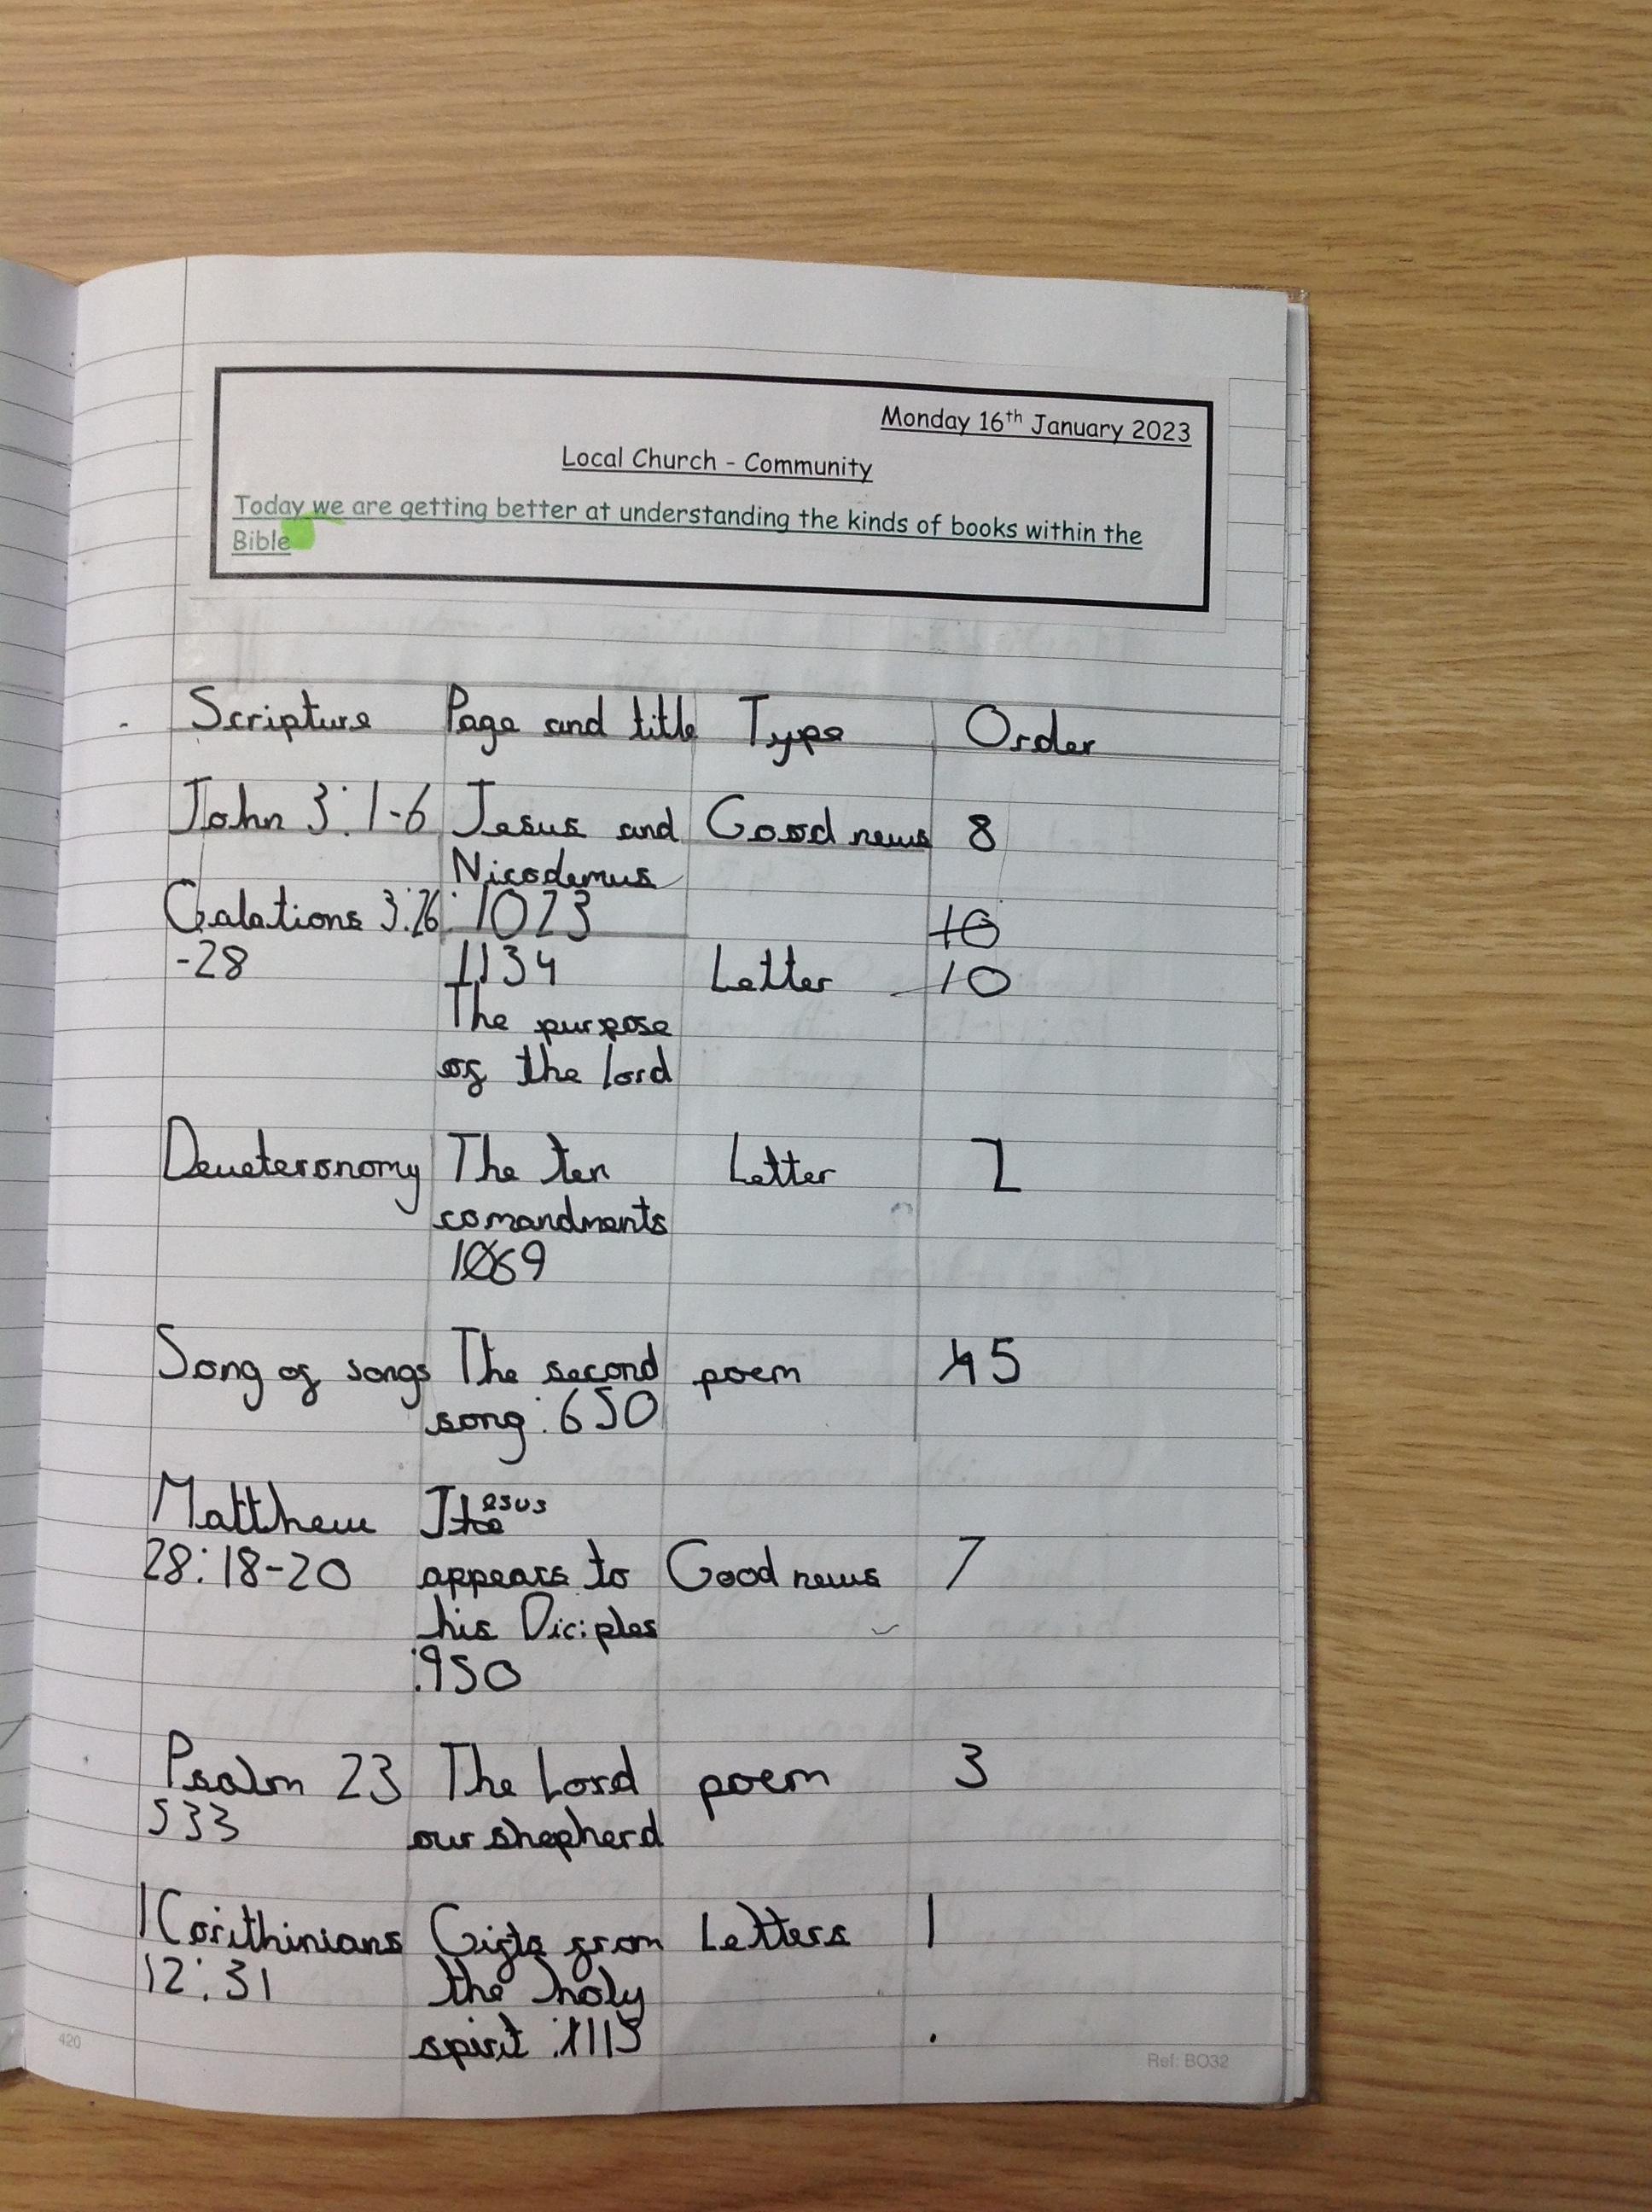 Monday 16th January 2023
Local Church - Community
Today we are getting better at understanding the kinds of books within the
Bible
Scripture Page and title Type Order
John 3:1-6 Jesus and Good news 8
Nicodemus
Galations 3:26 :1023 10
-28 1134 Letter 10
The purpose
of the lord
Deueteronomy The ten Letter 2
comandments
1069
Song of songs The second poem 45
song:650
Matthew Jesus
28:18-20 appears to Good news 7
his Diciples
:950
Psalm 23 The Lord poem 3
533 our shepherd
1Corithinians Gifts from Letters 1
12:31 the holy
spirit :1115
420
Ref: BO32